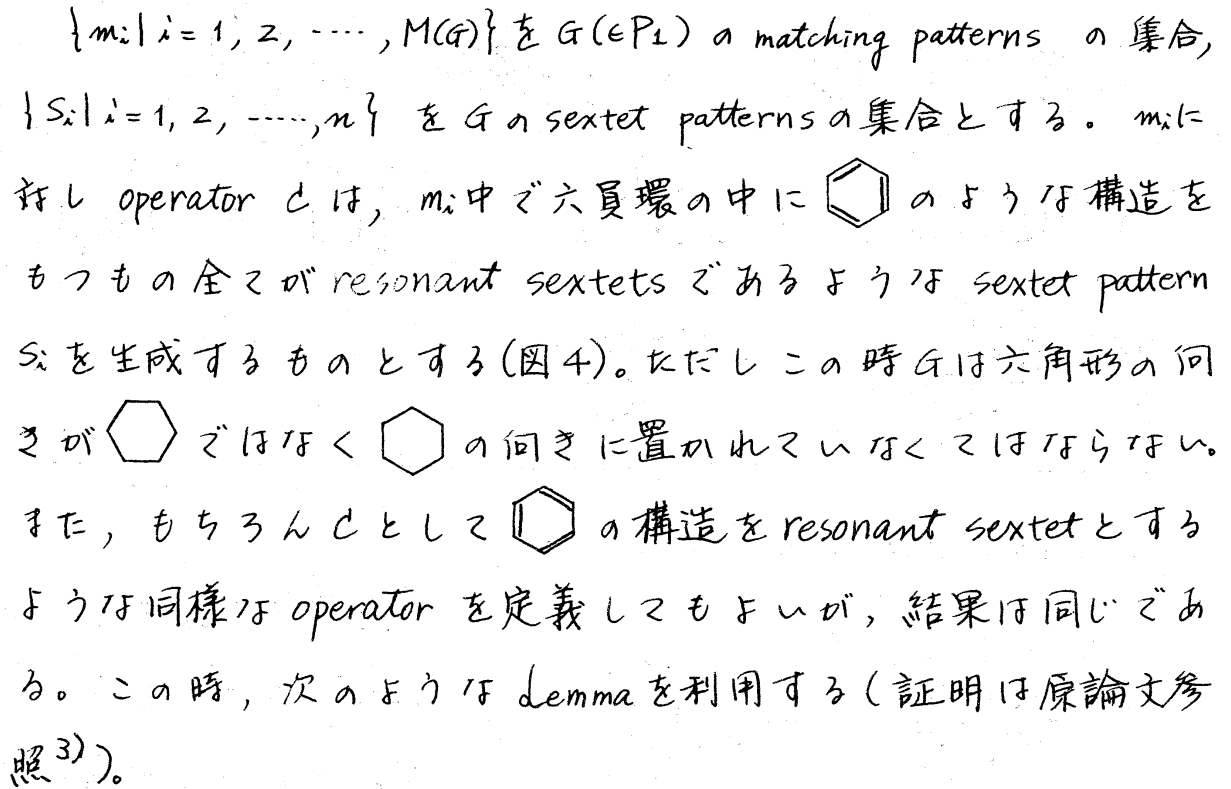 {mi|i=1, 2, ‥‥, M(G)}を G(∈P1) の matching patterns の集合,
{Si|i=1, 2, ‥‥‥, n} を G の sextet patterns の集合とする。 miに
対し operator C は, mi中で六員環の中に のような構造を
もつもの全てが resonant sextets であるような sextet pattern
Si を生成するものとする(図4)。ただしこの時Gは六角形の向
きが ではなく の向きに置かれていなくてはならない。
また, もちろんCとして の構造を resonant sextet とする
ような同様な operator を定義してもよいが, 結果は同じであ
る。この時, 次のような Lemma を利用する(証明は原論文参
照3))。